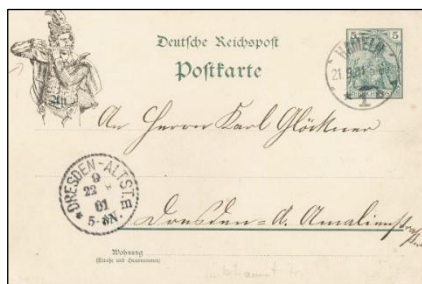 Deutsche Reichspost
Postkarte
5 5
HAMELN
1
An Herrn Karl Glöckner
DRESDEN-ALTST.
9
22
01
5-8N.
Dresden-A. Amalienstrasse
Wohnung
(Straße und Hausnummer)